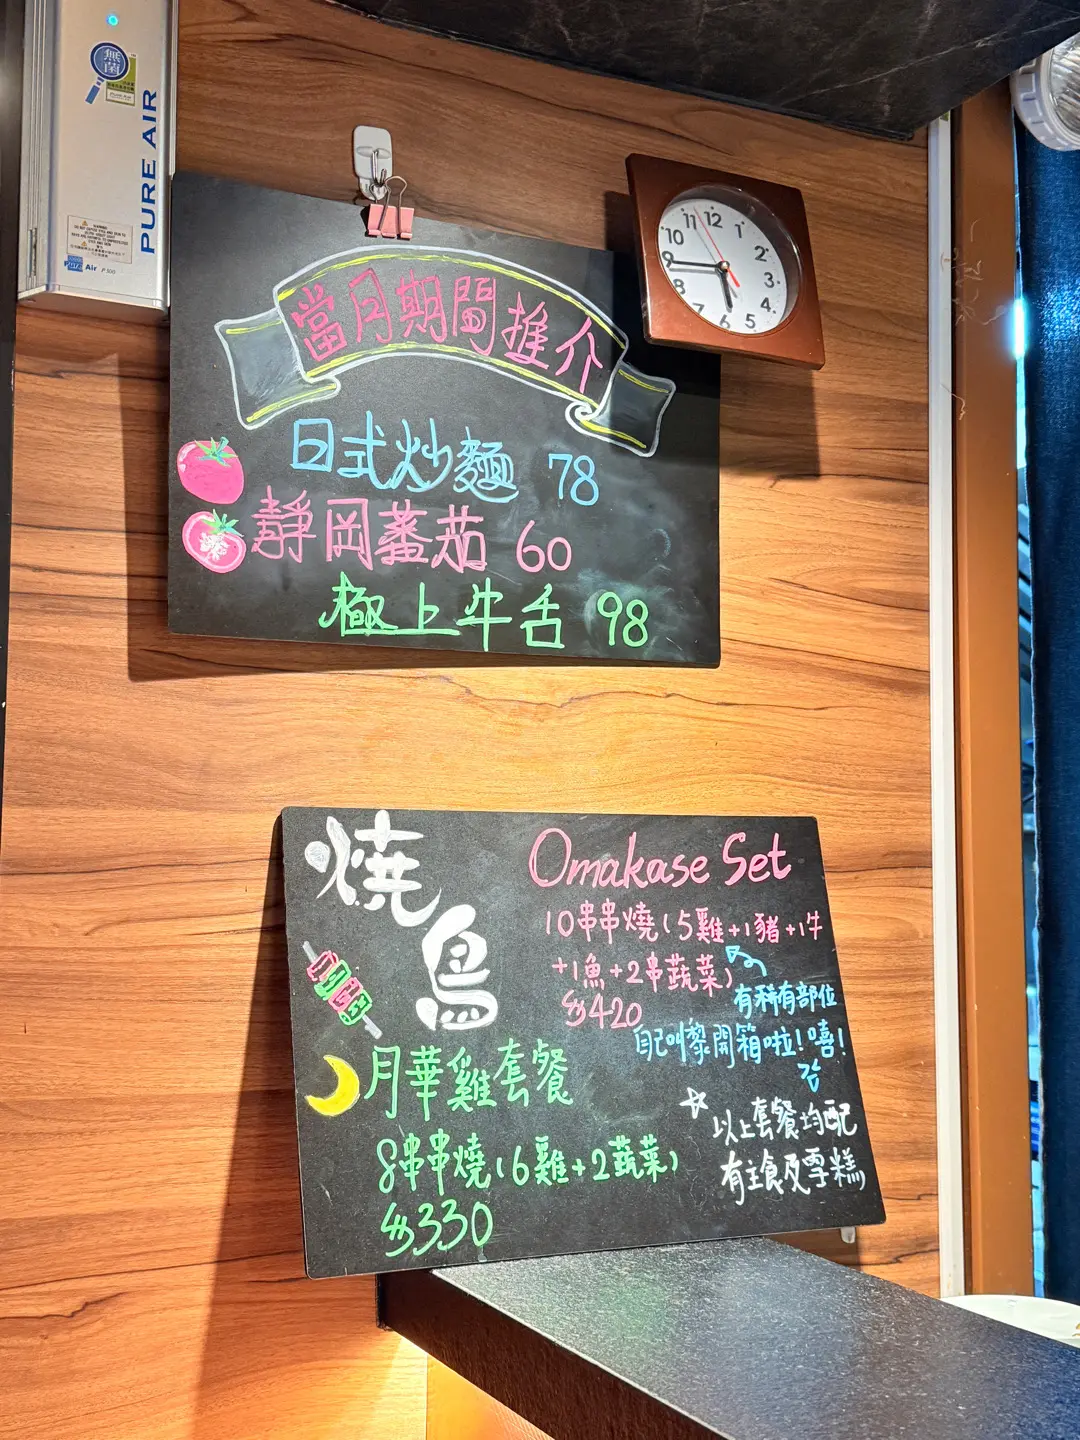 無菌
PURE AIR
WARNING
Pure Air P500
12
1
2
3
4
5
6
7
8
9
10
11
當月期間推介
日式炒麵 78
靜岡蕃茄 60
極上牛舌 98
燒鳥
月華雞套餐
8串串燒(6雞+2蔬菜)
$330
Omakase Set
10串串燒(5雞+1豬+1牛
+1魚+2串蔬菜)
$420
有稀有部位
自己叫黎開箱啦!嘻!
☆以上套餐均配
有主食及雪糕